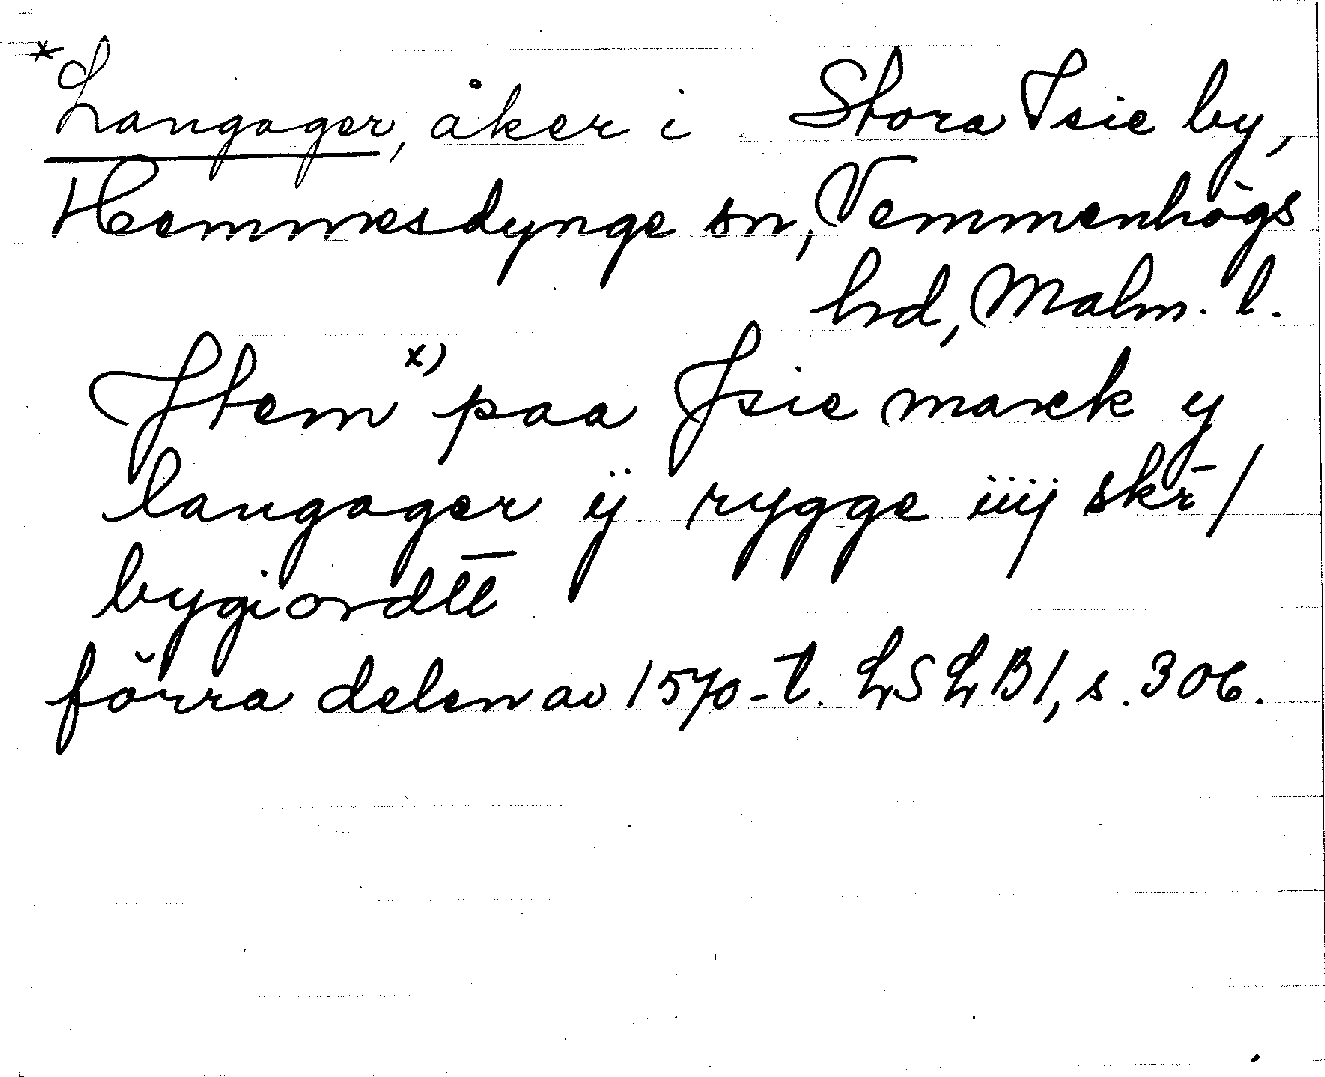 *Langager, åker i Stora Isie by,
Hemmesdynge sn, Vemmenhögs
hd, Malm. l.
Jtem x) paa Jsie marck y
langager ij rygge iiij skr̄/
bygiordtt̄
förra delen av 1570-t. LSLB1, s. 306.